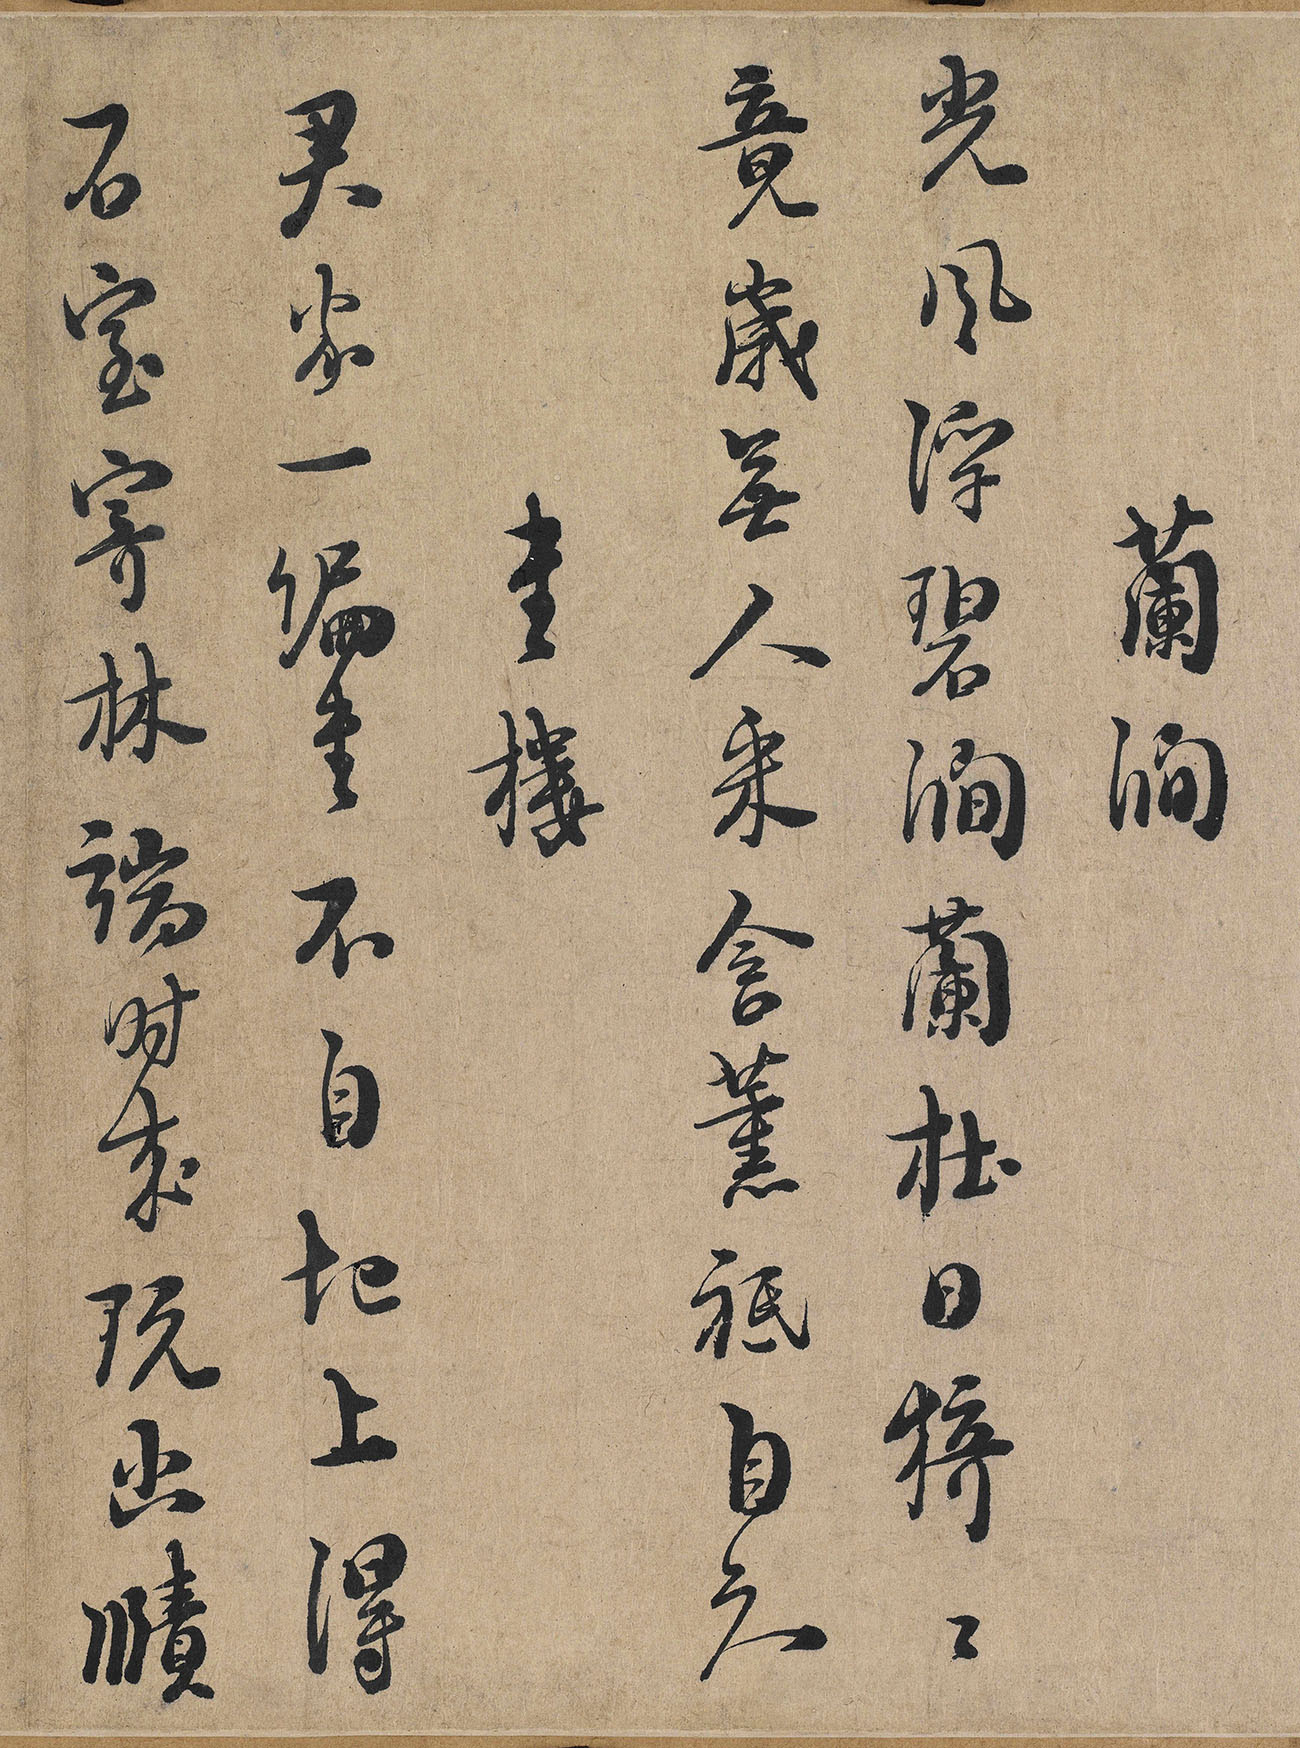 蘭澗
光風浮碧澗蘭杜日猗〻
竟歲無人采含薰祗自知
書樓
君家一編書不自圯上得
石室寄林端時來玩幽賾